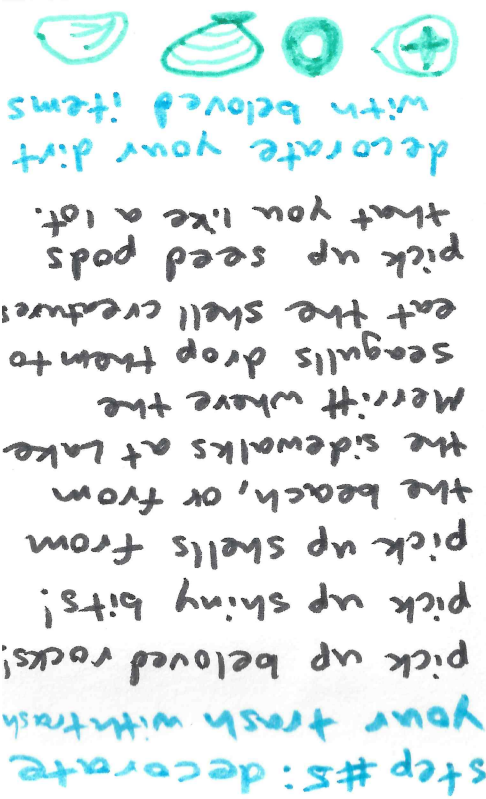 step #5: decorate
your trash with trash
pick up beloved rocks!
pick up shiny bits!
pick up shells from
the beach, or from
the sidewalks at Lake
Merritt where the
seagulls drop them to
eat the shell creatures
pick up seed pods
that you like a lot.
decorate your dirt
with beloved items